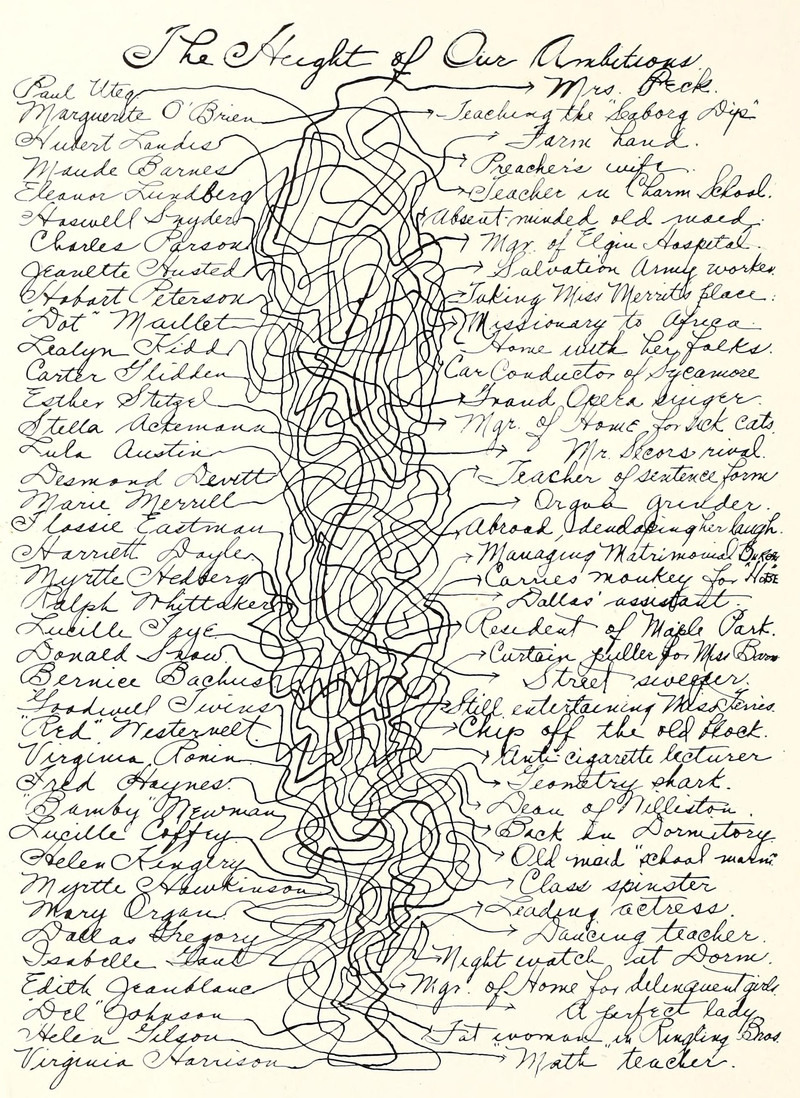 The Height of Our Ambitions
Paul Uteg
Marguerite O'Brien
Hubert Landis
Maude Barnes
Eleanor Lundberg
Haswell Snyder
Charles Parson
Jeanette Husted
Hobart Peterson
"Dot" Maillet
Lealyn Kidd
Carter Glidden
Esther Stitzel
Stella Ackemann
Lula Austin
Desmond Devitt
Marie Merrill
Flossie Eastman
Harriett Doyle
Myrtle Hedberg
Ralph Whittaker
Lucille Frye
Donald Snow
Bernice Bachus
Goodwell Twins
"Red" Westervelt
Virginia Ronin
Fred Haynes
"Bumby" Newman
Lucille Coffey
Helen Kingery
Myrtle Hawkinson
Mary Organ
Dallas Gregory
Isabelle
Edith Jeanblanc
"Del" Johnson
Helen Gilson
Virginia Harrison
Mrs. Peck.
Teaching the "Seaborg Dip"
Farm hand.
Preacher's wife.
Teacher in Charm School.
Absent minded old maid.
Mgr. of Elgin Hospital.
Salvation Army worker.
Taking Miss Merritt's place.
Missionary to Africa.
Home with her folks.
Car Conductor of Sycamore
Grand Opera singer.
Mgr. of Home for sick cats.
Mr. Secors rival.
Teacher of sentence form
Organ grinder.
Abroad, her laugh.
Managing Matrimonial
Carries monkey for
Dallas' assistant.
Resident of Maple Park.
Curtain puller for Miss
Street sweeper.
Still entertaining Miss
Chip off the old block.
Anti-cigarette lecturer
Geometry shark.
Dean of Williston.
Back in Dormitory.
Old maid "school marm"
Class spinster
Leading actress.
Dancing teacher.
Night watch at Dorm.
Mgr. of Home for delinquent girls.
A perfect lady.
Fat woman in Ringling Bros.
Math teacher.